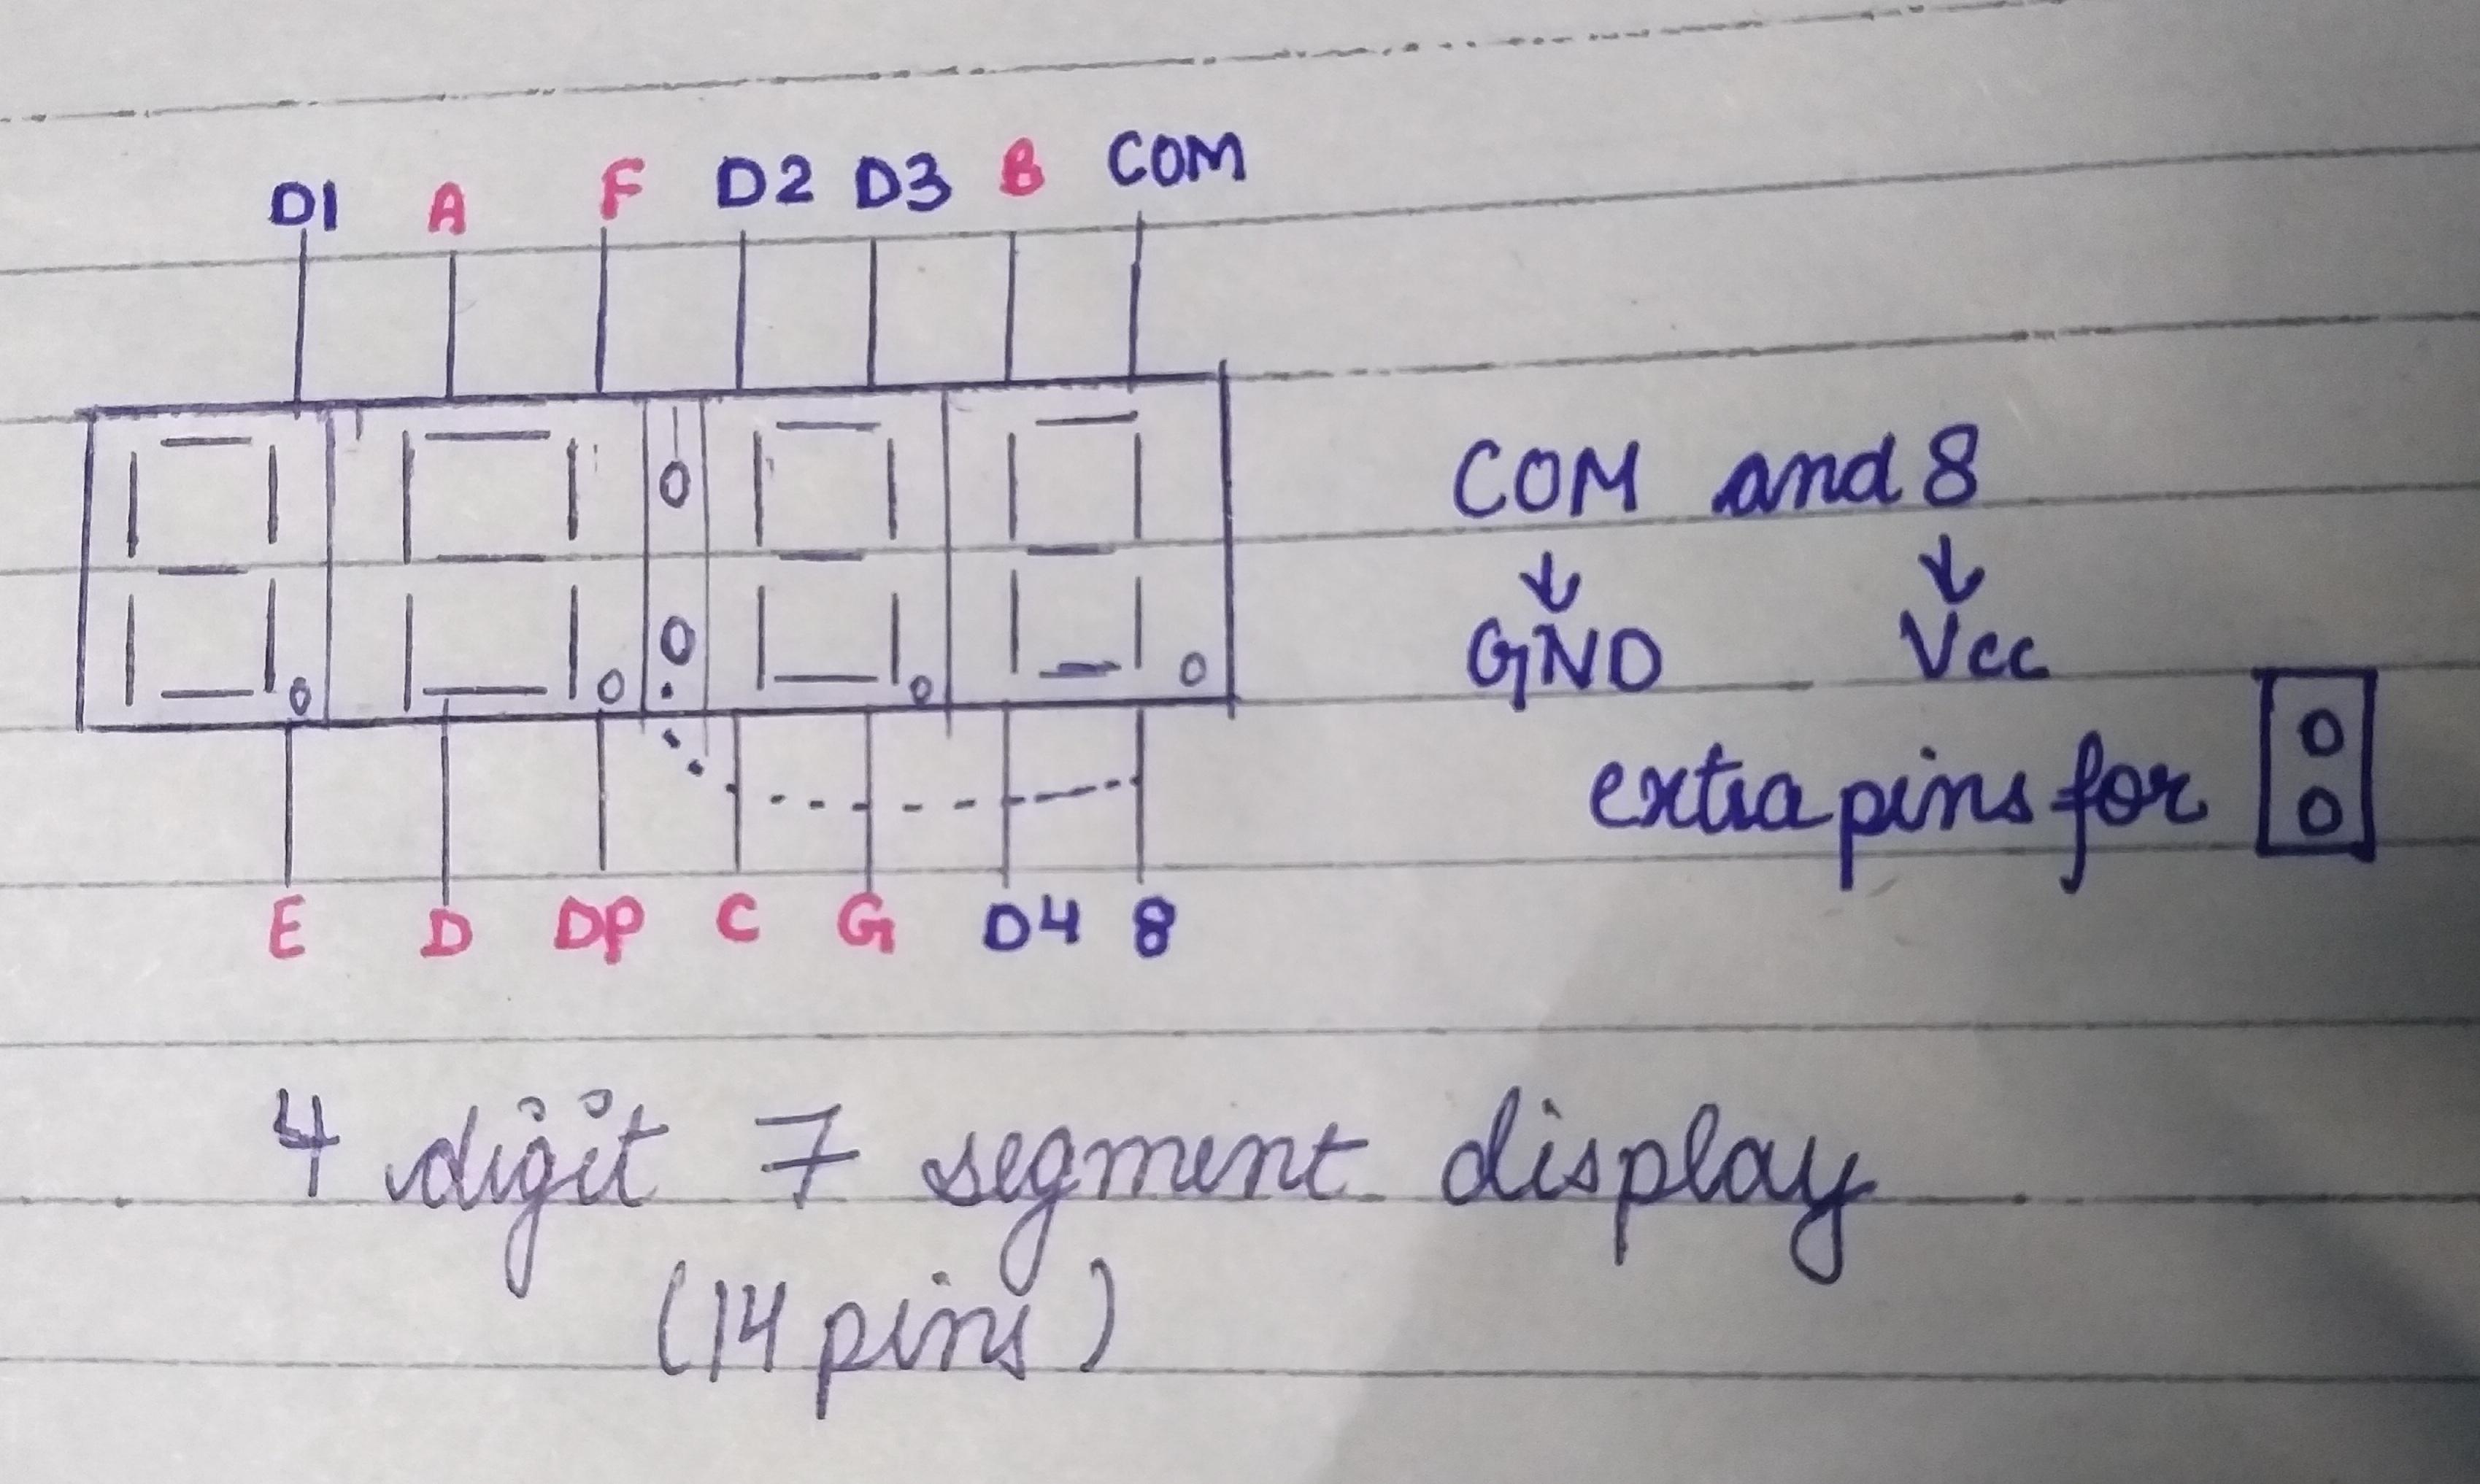 D1 A F D2 D3 B COM
COM and 8
GND Vcc
extra pins for
E D DP C G D4 8
4 digit 7 segment display
(14 pins)